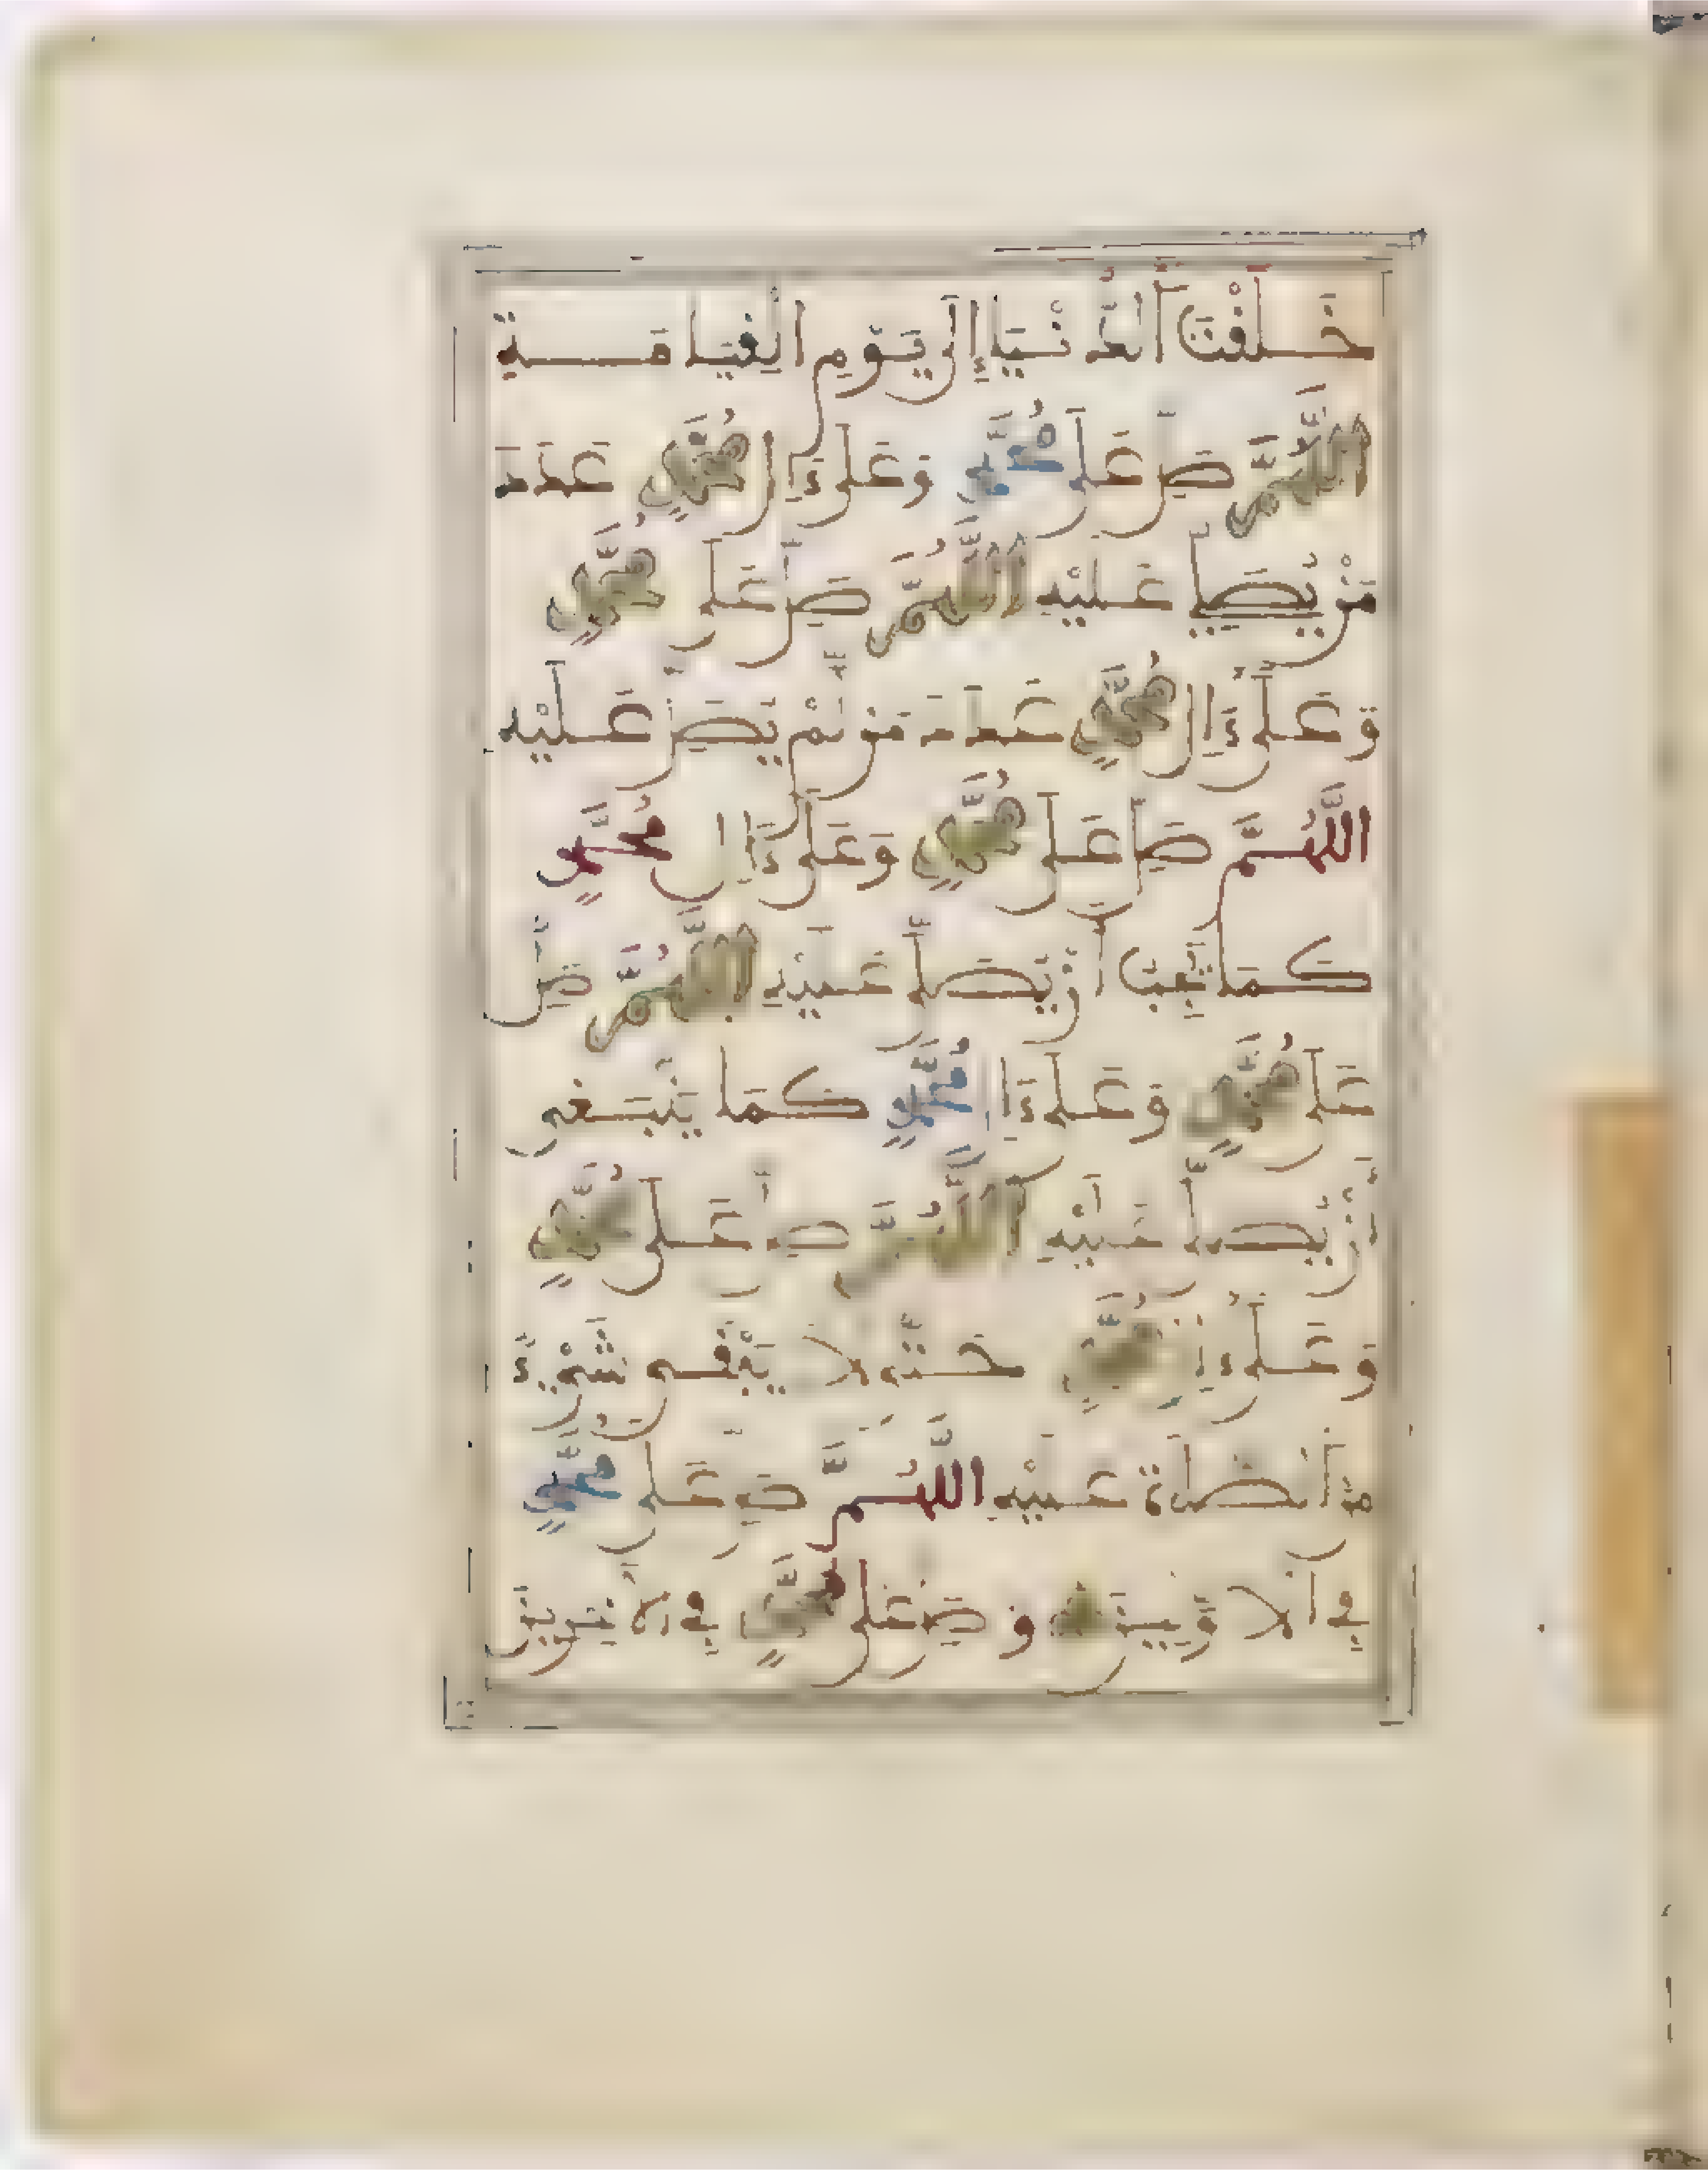 خَلَقْتَ ٱلدُّنْيَا إِلَى يَوْمِ ٱلْقِيَامَةِ
اللَّهُمَّ صَلِّ عَلَى مُحَمَّدٍ وَعَلَى ءَالِ مُحَمَّدٍ عَدَدَ
مَنْ يُصَلِّي عَلَيْهِ اللَّهُمَّ صَلِّ عَلَى مُحَمَّدٍ
وَعَلَى ءَالِ مُحَمَّدٍ عَدَدَ مَن لَّمْ يُصَلِّ عَلَيْهِ
اللَّهُمَّ صَلِّ عَلَى مُحَمَّدٍ وَعَلَى ءَالِ مُحَمَّدٍ
كَمَا تُحِبُّ أَنْ يُصَلَّى عَلَيْهِ اللَّهُمَّ صَلِّ
عَلَى مُحَمَّدٍ وَعَلَى ءَالِ مُحَمَّدٍ كَمَا يَنْبَغِي
أَنْ يُصَلَّى عَلَيْهِ اللَّهُمَّ صَلِّ عَلَى مُحَمَّدٍ
وَعَلَى ءَالِ مُحَمَّدٍ حَتَّى لَا يَبْقَى شَيْءٌ
مِنَ ٱلصَّلَاةِ عَلَيْهِ اللَّهُمَّ صَلِّ عَلَى مُحَمَّدٍ
فِي ٱلْأَوَّلِينَ وَصَلِّ عَلَى مُحَمَّدٍ فِي